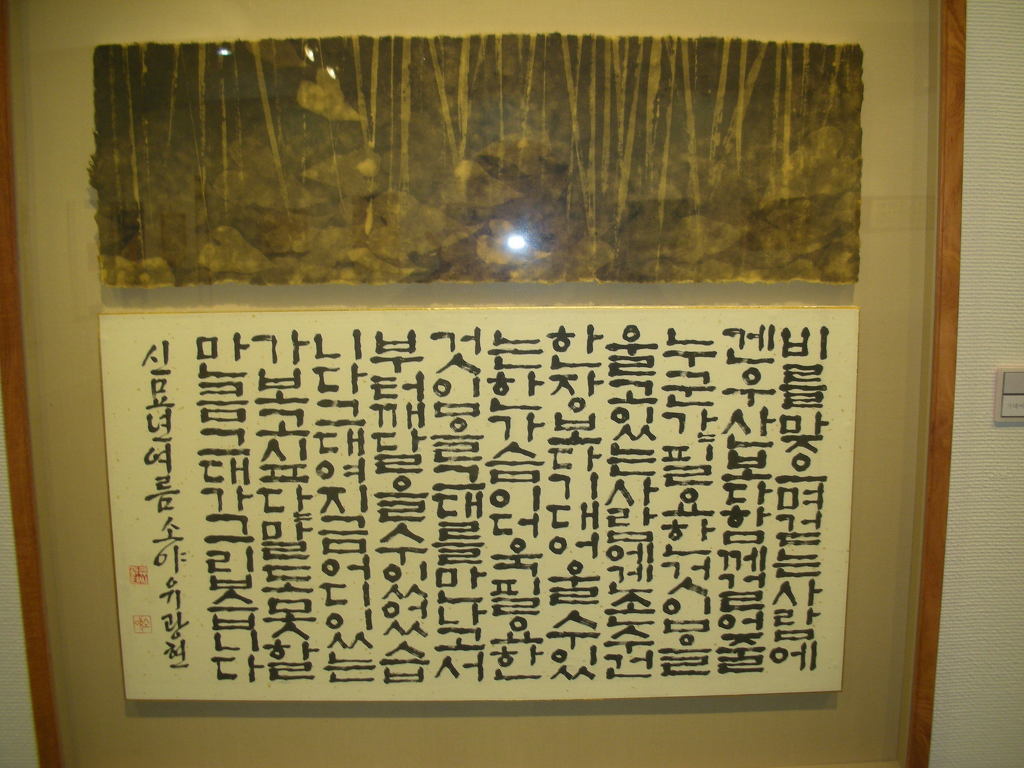 비를맞으며걷는사람에
겐우산보다함께걸어줄
누군가가필요한것임을
울고있는사람에겐손수건
한장보다기대어울수있
는한가슴이더욱필요한
것임을그대를만나고서
부터깨달을수있었습
니다그대여지금어디있는
가보고싶다말도못할
만큼그대가그립습니다
신묘년여름소야유광현